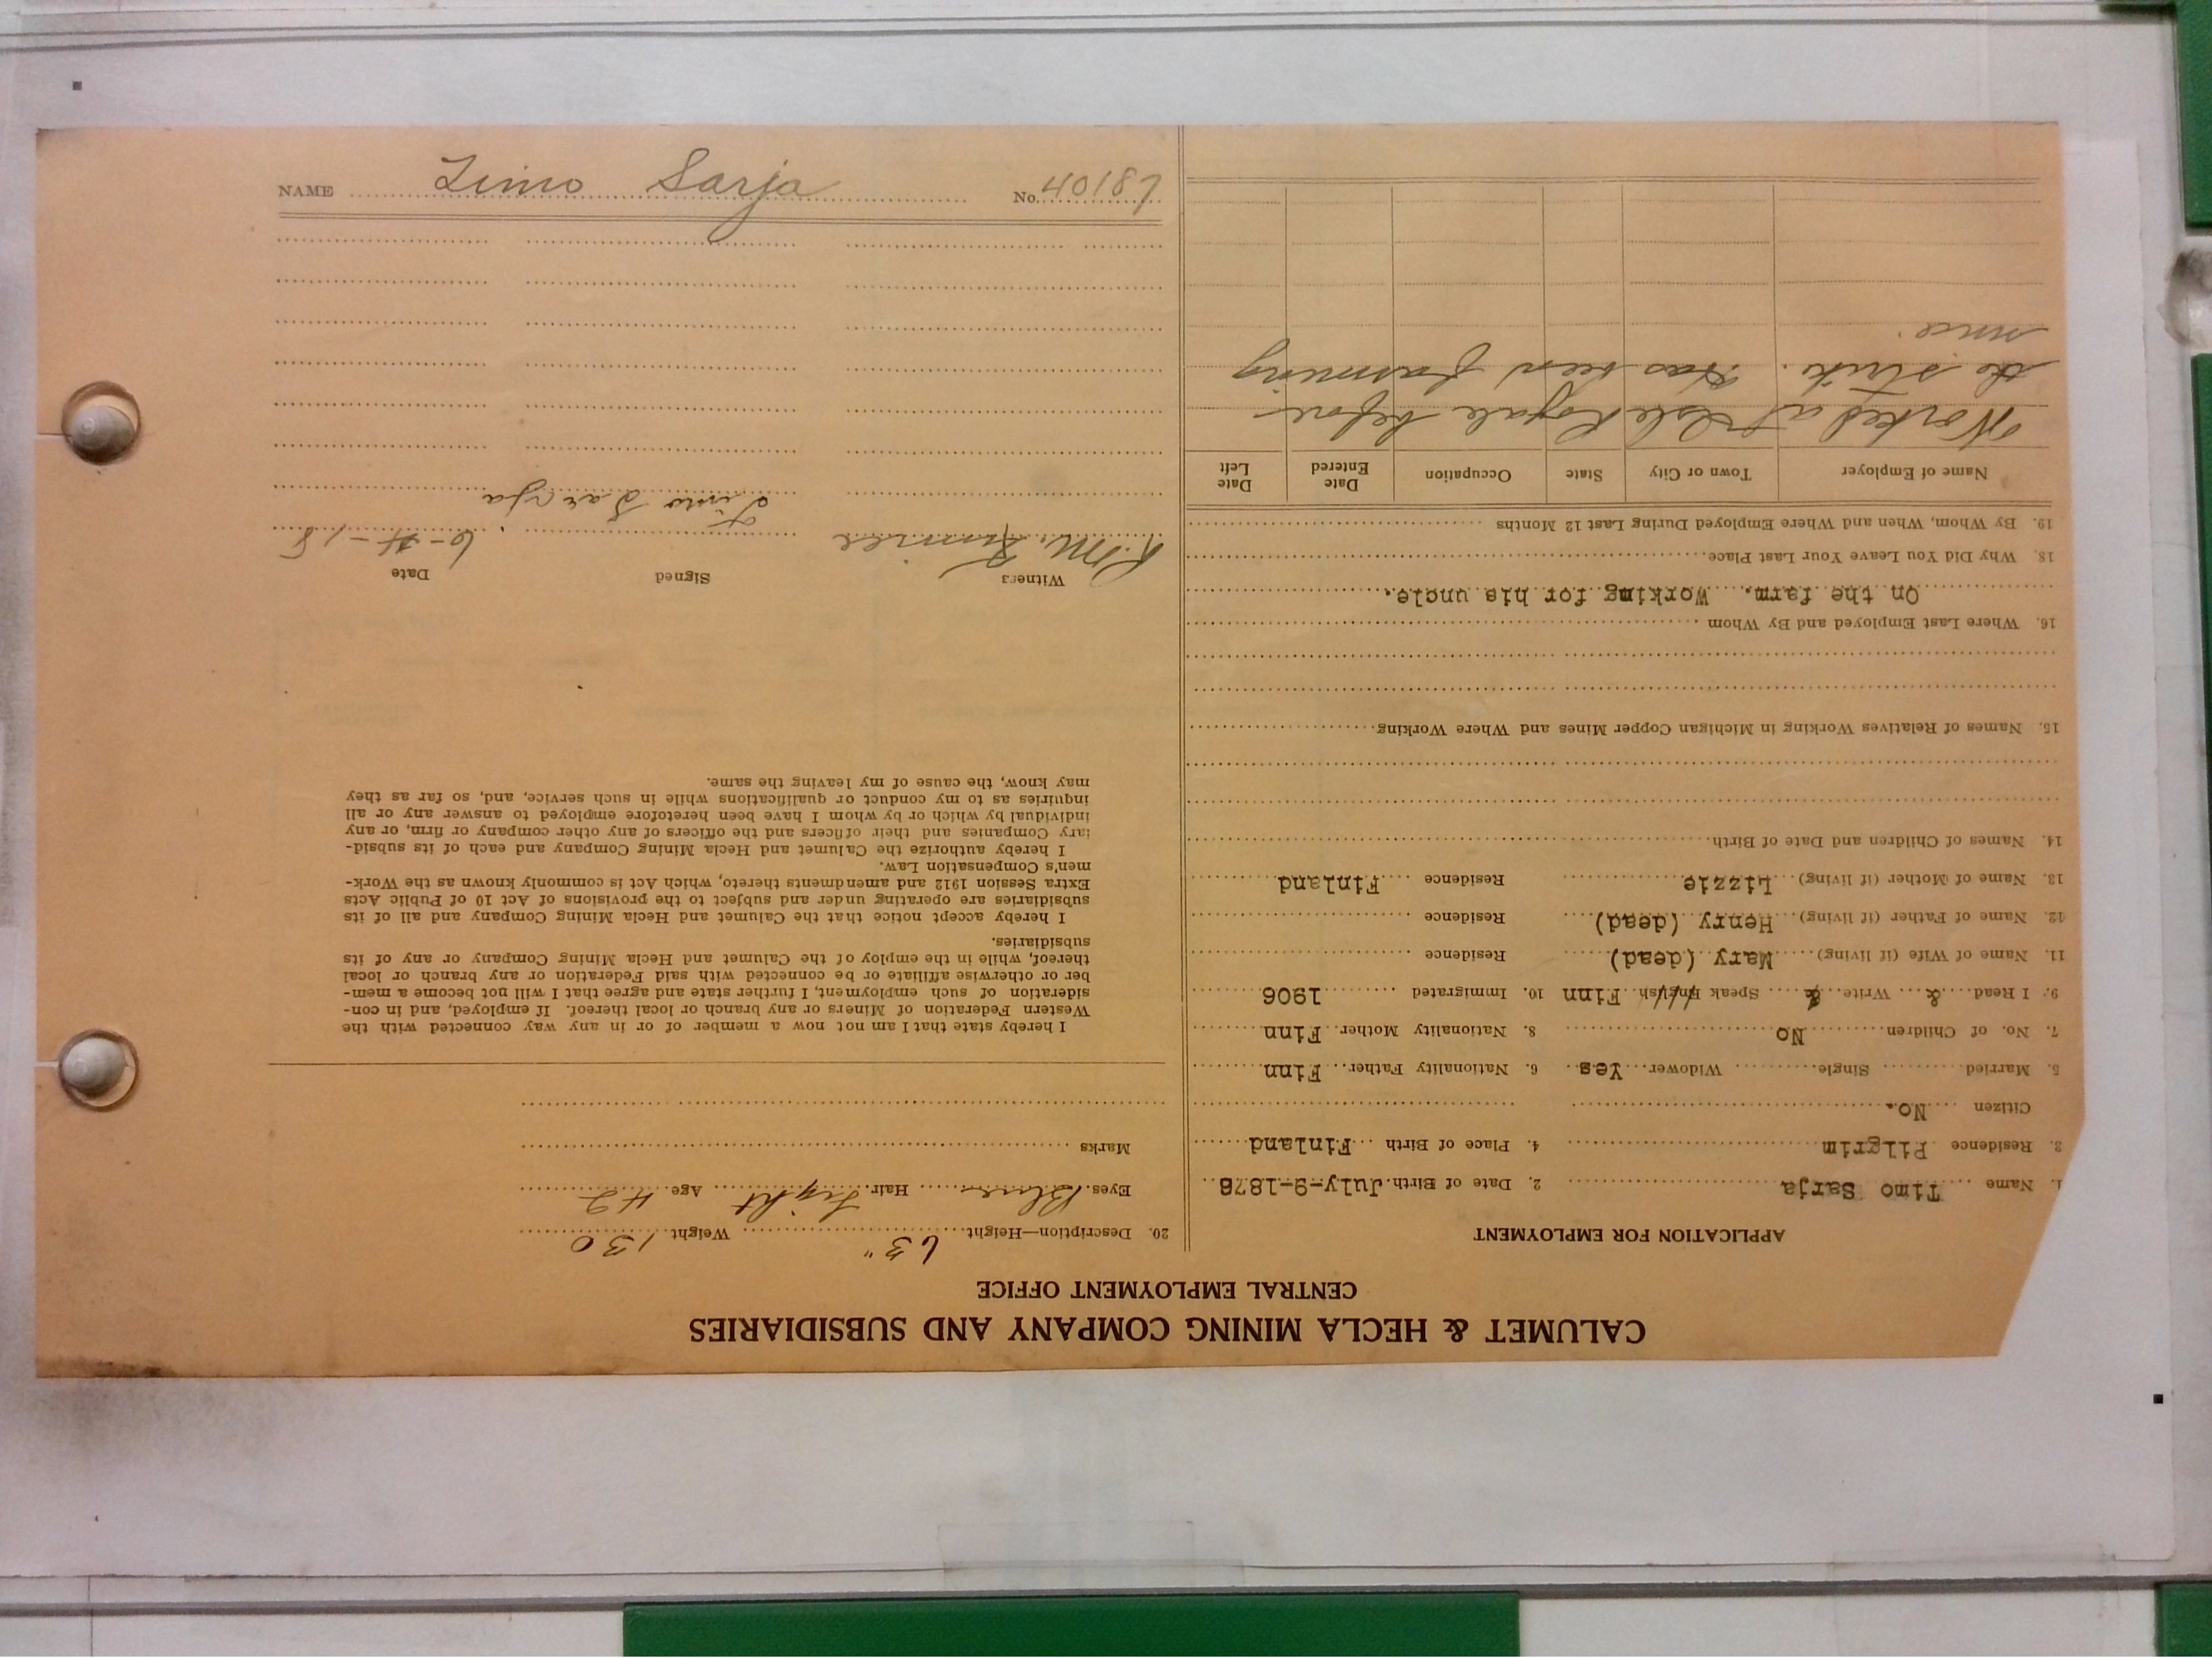 CALUMET & HECLA MINING COMPANY AND SUBSIDIARIES
CENTRAL EMPLOYMENT OFFICE
APPLICATION FOR EMPLOYMENT
1. Name Timo Sarja 2. Date of Birth July-9-1876
3. Residence Pilgrim 4. Place of Birth Finland
Citizen No.
5. Married Single Widower Yes 6. Nationality Father Finn
7. No. of Children No 8. Nationality Mother Finn
9. I Read & Write & Speak English Finn 10. Immigrated 1906
11. Name of Wife (if living) Mary (dead) Residence
12. Name of Father (if living) Henry (dead) Residence
13. Name of Mother (if living) Lizzie Residence Finland
14. Names of Children and Date of Birth
15. Names of Relatives Working in Michigan Copper Mines and Where Working
16. Where Last Employed and By Whom
On the farm. Working for his uncle.
18. Why Did You Leave Your Last Place
19. By Whom, When and Where Employed During Last 12 Months
Name of Employer Town or City State Occupation Date Entered Date Left
Worked at Isle Royale before
the strike. Has been farming
since.
20. Description—Height 63" Weight 130
Eyes Blue Hair Light Age 42
Marks
I hereby state that I am not now a member of or in any way connected with the
Western Federation of Miners or any branch or local thereof. If employed, and in con-
sideration of such employment, I further state and agree that I will not become a mem-
ber or otherwise affiliate or be connected with said Federation or any branch or local
thereof, while in the employ of the Calumet and Hecla Mining Company or any of its
subsidiaries.
I hereby accept notice that the Calumet and Hecla Mining Company and all of its
subsidiaries are operating under and subject to the provisions of Act 10 of Public Acts
Extra Session 1912 and amendments thereto, which Act is commonly known as the Work-
men's Compensation Law.
I hereby authorize the Calumet and Hecla Mining Company and each of its subsid-
iary Companies and their officers and the officers of any other company or firm, or any
individual by which or by whom I have been heretofore employed to answer any or all
inquiries as to my conduct or qualifications while in such service, and, so far as they
may know, the cause of my leaving the same.
Witness Signed Date
R.M. 6-4-18
Timo Sarja
NAME Timo Sarja No. 40187